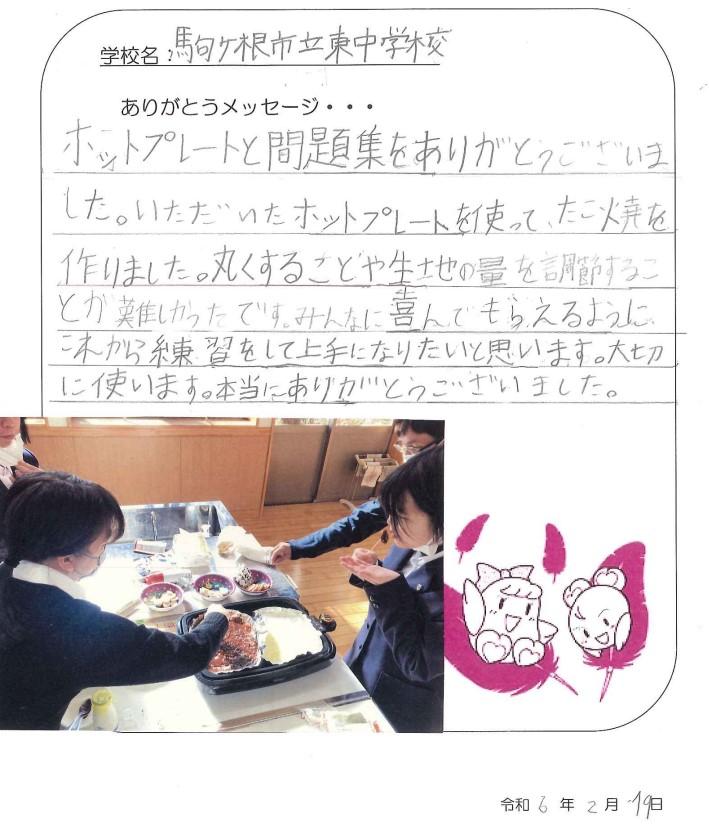 学校名：駒ケ根市立東中学校
ありがとうメッセージ・・・
ホットプレートと問題集をありがとうございま
した。いただいたホットプレートを使って、たこ焼を
作りました。丸くすることや生地の量を調節するこ
とが難しかったです。みんなに喜んでもらえるように
これから練習をして上手になりたいと思います。大切
に使います。本当にありがとうございました。
令和6年2月19日